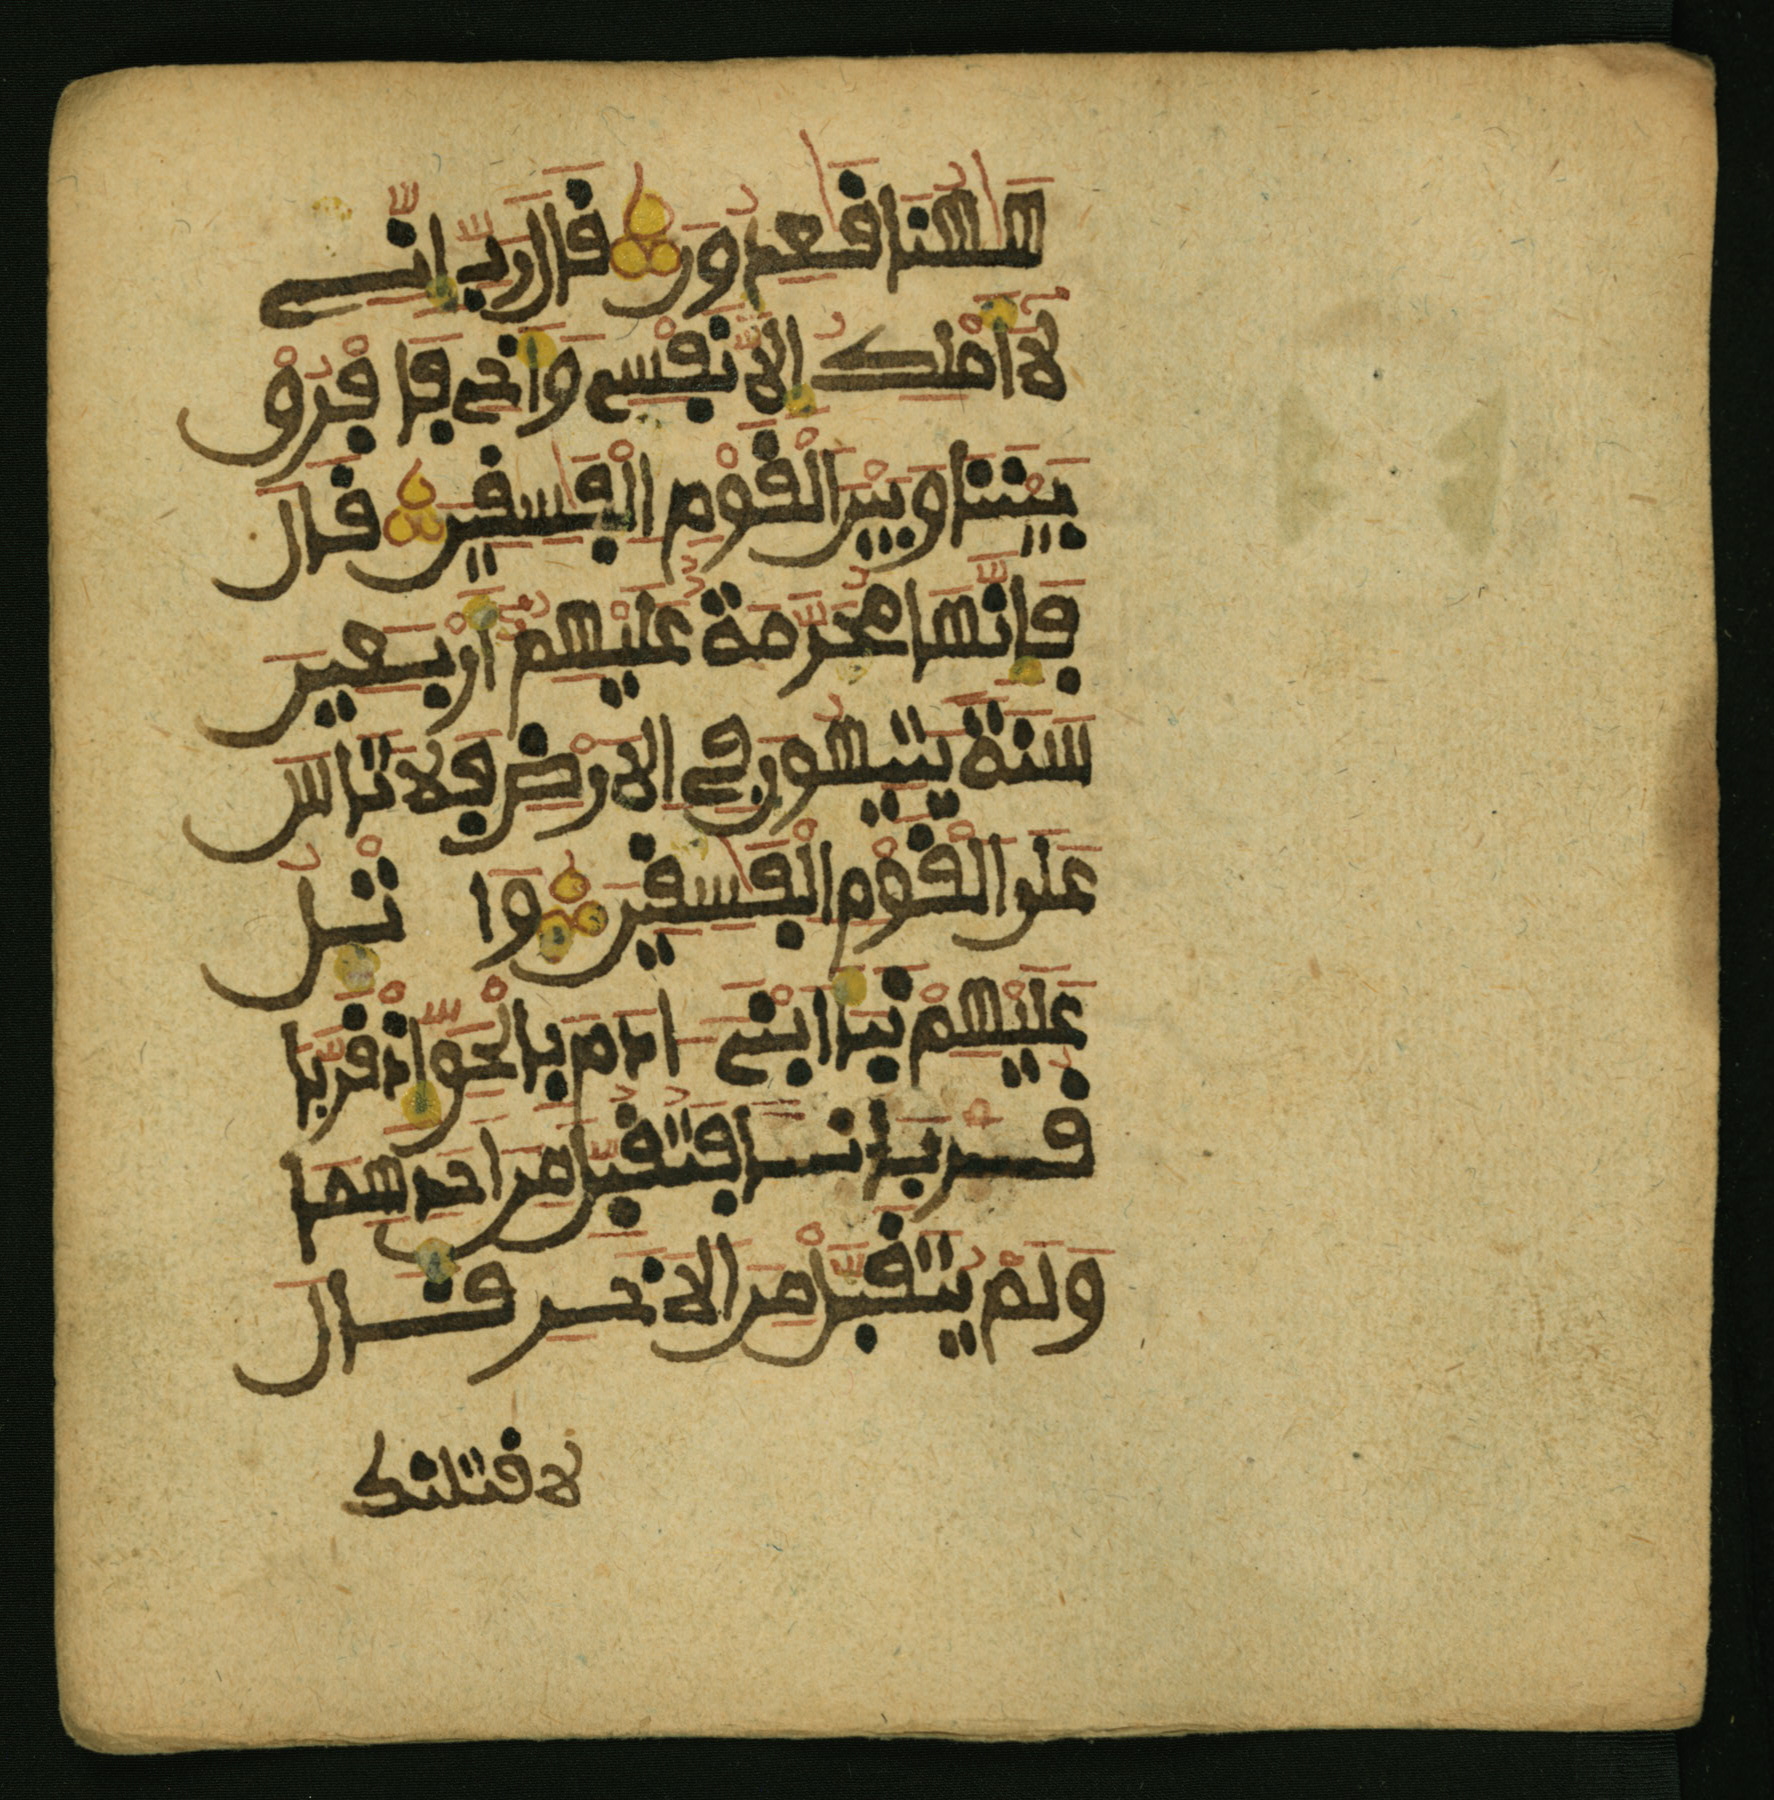 هَٰهُنَا قَٰعِدُونَ قَالَ رَبِّ إِنِّے
لَآ أَمْلِكُ إِلَّا نَفْسِے وَأَخِے فَافْرُقْ
بَيْنَنَا وَبَيْنَ الْقَوْمِ الْفَٰسِقِينَ قَالَ
فَإِنَّهَا مُحَرَّمَةٌ عَلَيْهِمُۥٓ أَرْبَعِينَ
سَنَةً يَتِيهُونَ فِے الَارْضِ فَلَا تَاسَ
عَلَى الْقَوْمِ الْفَٰسِقِينَ وَا تْلُ
عَلَيْهِمْ نَبَأَ ابْنَےْ ءَادَمَ بِالْحَقِّ إِذْ قَرَّبَا
قُرْبَانا فَتُقُبِّلَ مِنَ اَحَدِهِمَا
وَلَمْ يُتَقَبَّلْ مِنَ الَاخَرِ قَالَ
لاقتلنك